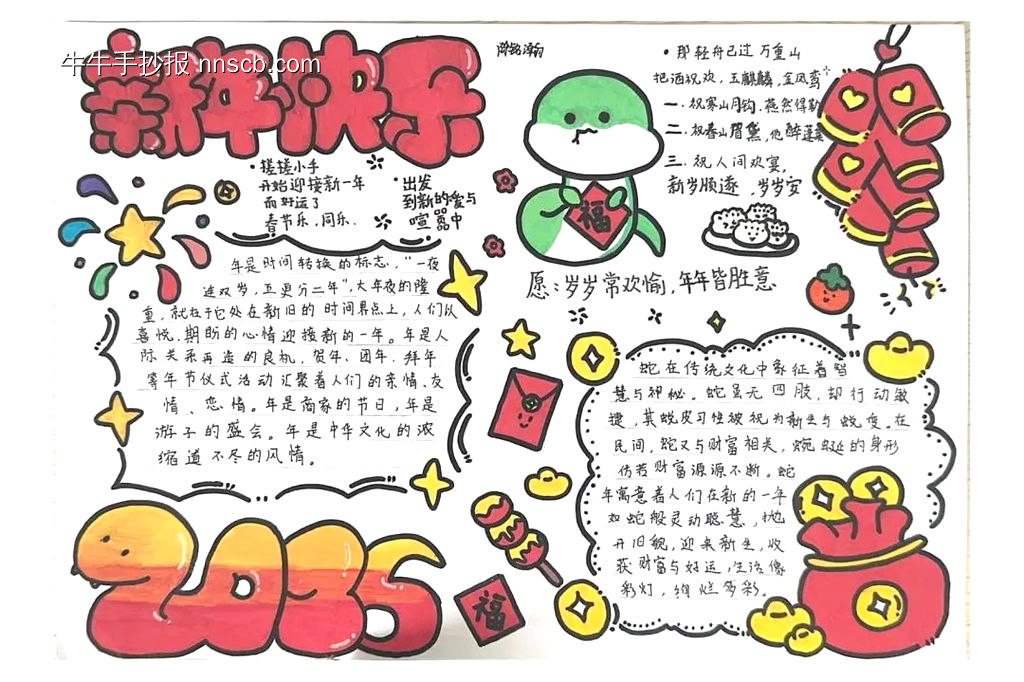 新年快乐
牛牛手抄报 nnscb.com
•搓搓小手
开始迎接新一年
而好运了
春节乐,同乐.
•出发
到新的爱与
喧嚣中
•那轻舟已过万重山
把酒祝欢,玉麒麟,金凤鸾
一.祝寒山月钩,燕然得勒
二.祝春山眉黛,他醉蓬莱
三.祝人间欢宴,
新岁顺遂,岁岁安
福
愿:岁岁常欢愉,年年皆胜意
年是时间转换的标志,“一夜
连双岁,五更分二年”,大年夜的隆
重,就在于它处在新旧的时间界点上,人们以
喜悦、期盼的心情迎接新的一年。年是人
际关系再造的良机,贺年、团年、拜年
等年节仪式活动汇聚着人们的亲情、友
情、恋情。年是商家的节日,年是
游子的盛会。年是中华文化的浓
缩道不尽的风情。
蛇在传统文化中象征着智
慧与神秘。蛇虽无四肢,却行动敏
捷,其蜕皮习性被视为新生与蜕变。在
民间,蛇又与财富相关,蜿蜒的身形
仿若财富源源不断。蛇
年寓意着人们在新的一年
如蛇般灵动聪慧,抛
开旧貌,迎来新生,收
获财富与好运,生活像
彩灯,绚烂多彩。
福